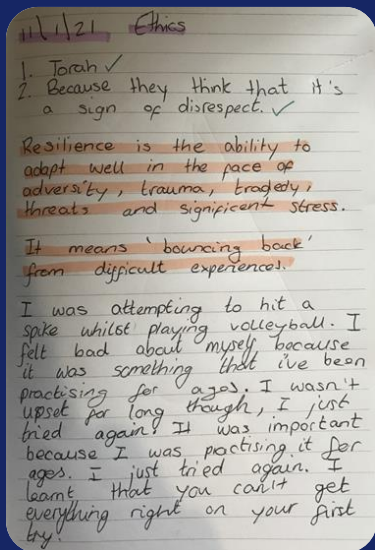 11/1/21 Ethics
1. Torah ✓
2. Because they think that it's
a sign of disrespect. ✓
Resilience is the ability to
adapt well in the face of
adversity, trauma, tragedy,
threats and significent stress.
It means 'bouncing back'
from difficult experiences.
I was attempting to hit a
spike whilst playing volleyball. I
felt bad about myself because
it was something that i've been
practising for ages. I wasn't
upset for long though, I just
tried again. It was important
because I was practising it for
ages. I just tried again. I
learnt that you can't get
everything right on your first
try.